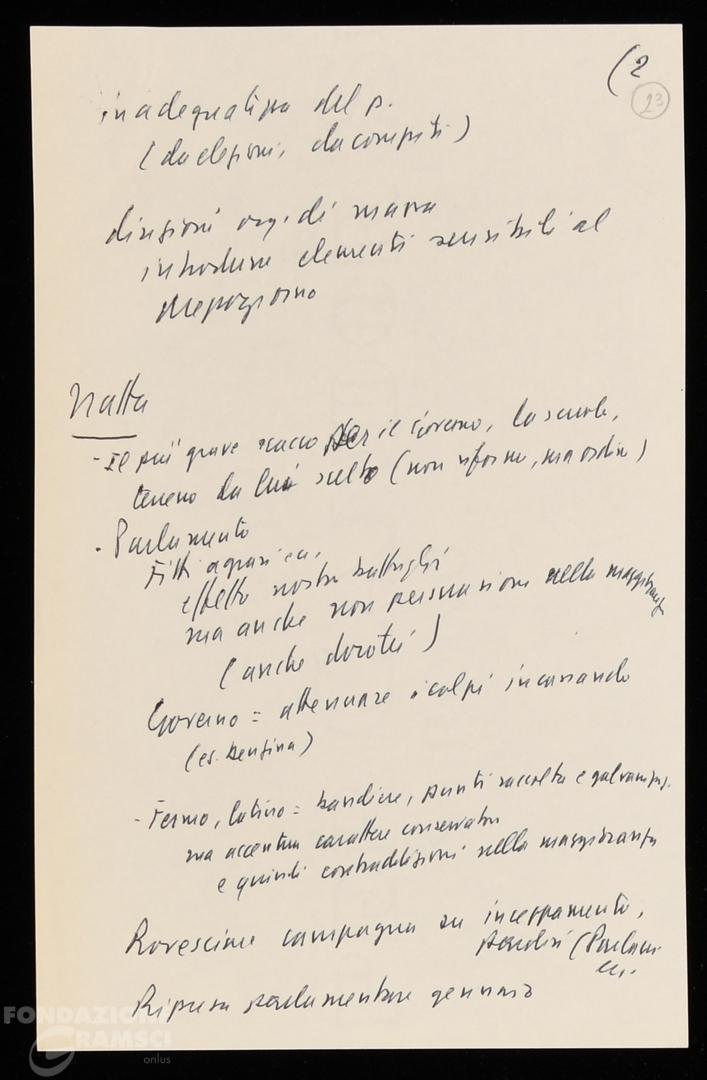 (2
23
inadeguatezza del p.
(da elezioni, da compiti)
divisioni org. di massa
introdurre elementi sensibili al
Mezzogiorno
Natta
- Il più grave scacco per il Governo, la scuola,
terreno da lui scelto (non riforme, ma ordine)
- Parlamento
Fitti agrari ecc.
effetto nostre battaglie
ma anche non persuasione nella maggioranza
(anche dorotei)
Governo = attenuare i colpi incassando
(es. benzina)
- Fermo, latino = bandiere, punti raccolta e
ma accentua carattere conservatore
e quindi contraddizioni nella maggioranza
Rovesciare campagna su inceppamento,
(Parlam.
ecc.
Ripresa parlamentare gennaio
FONDAZIONE
GRAMSCI
onlus